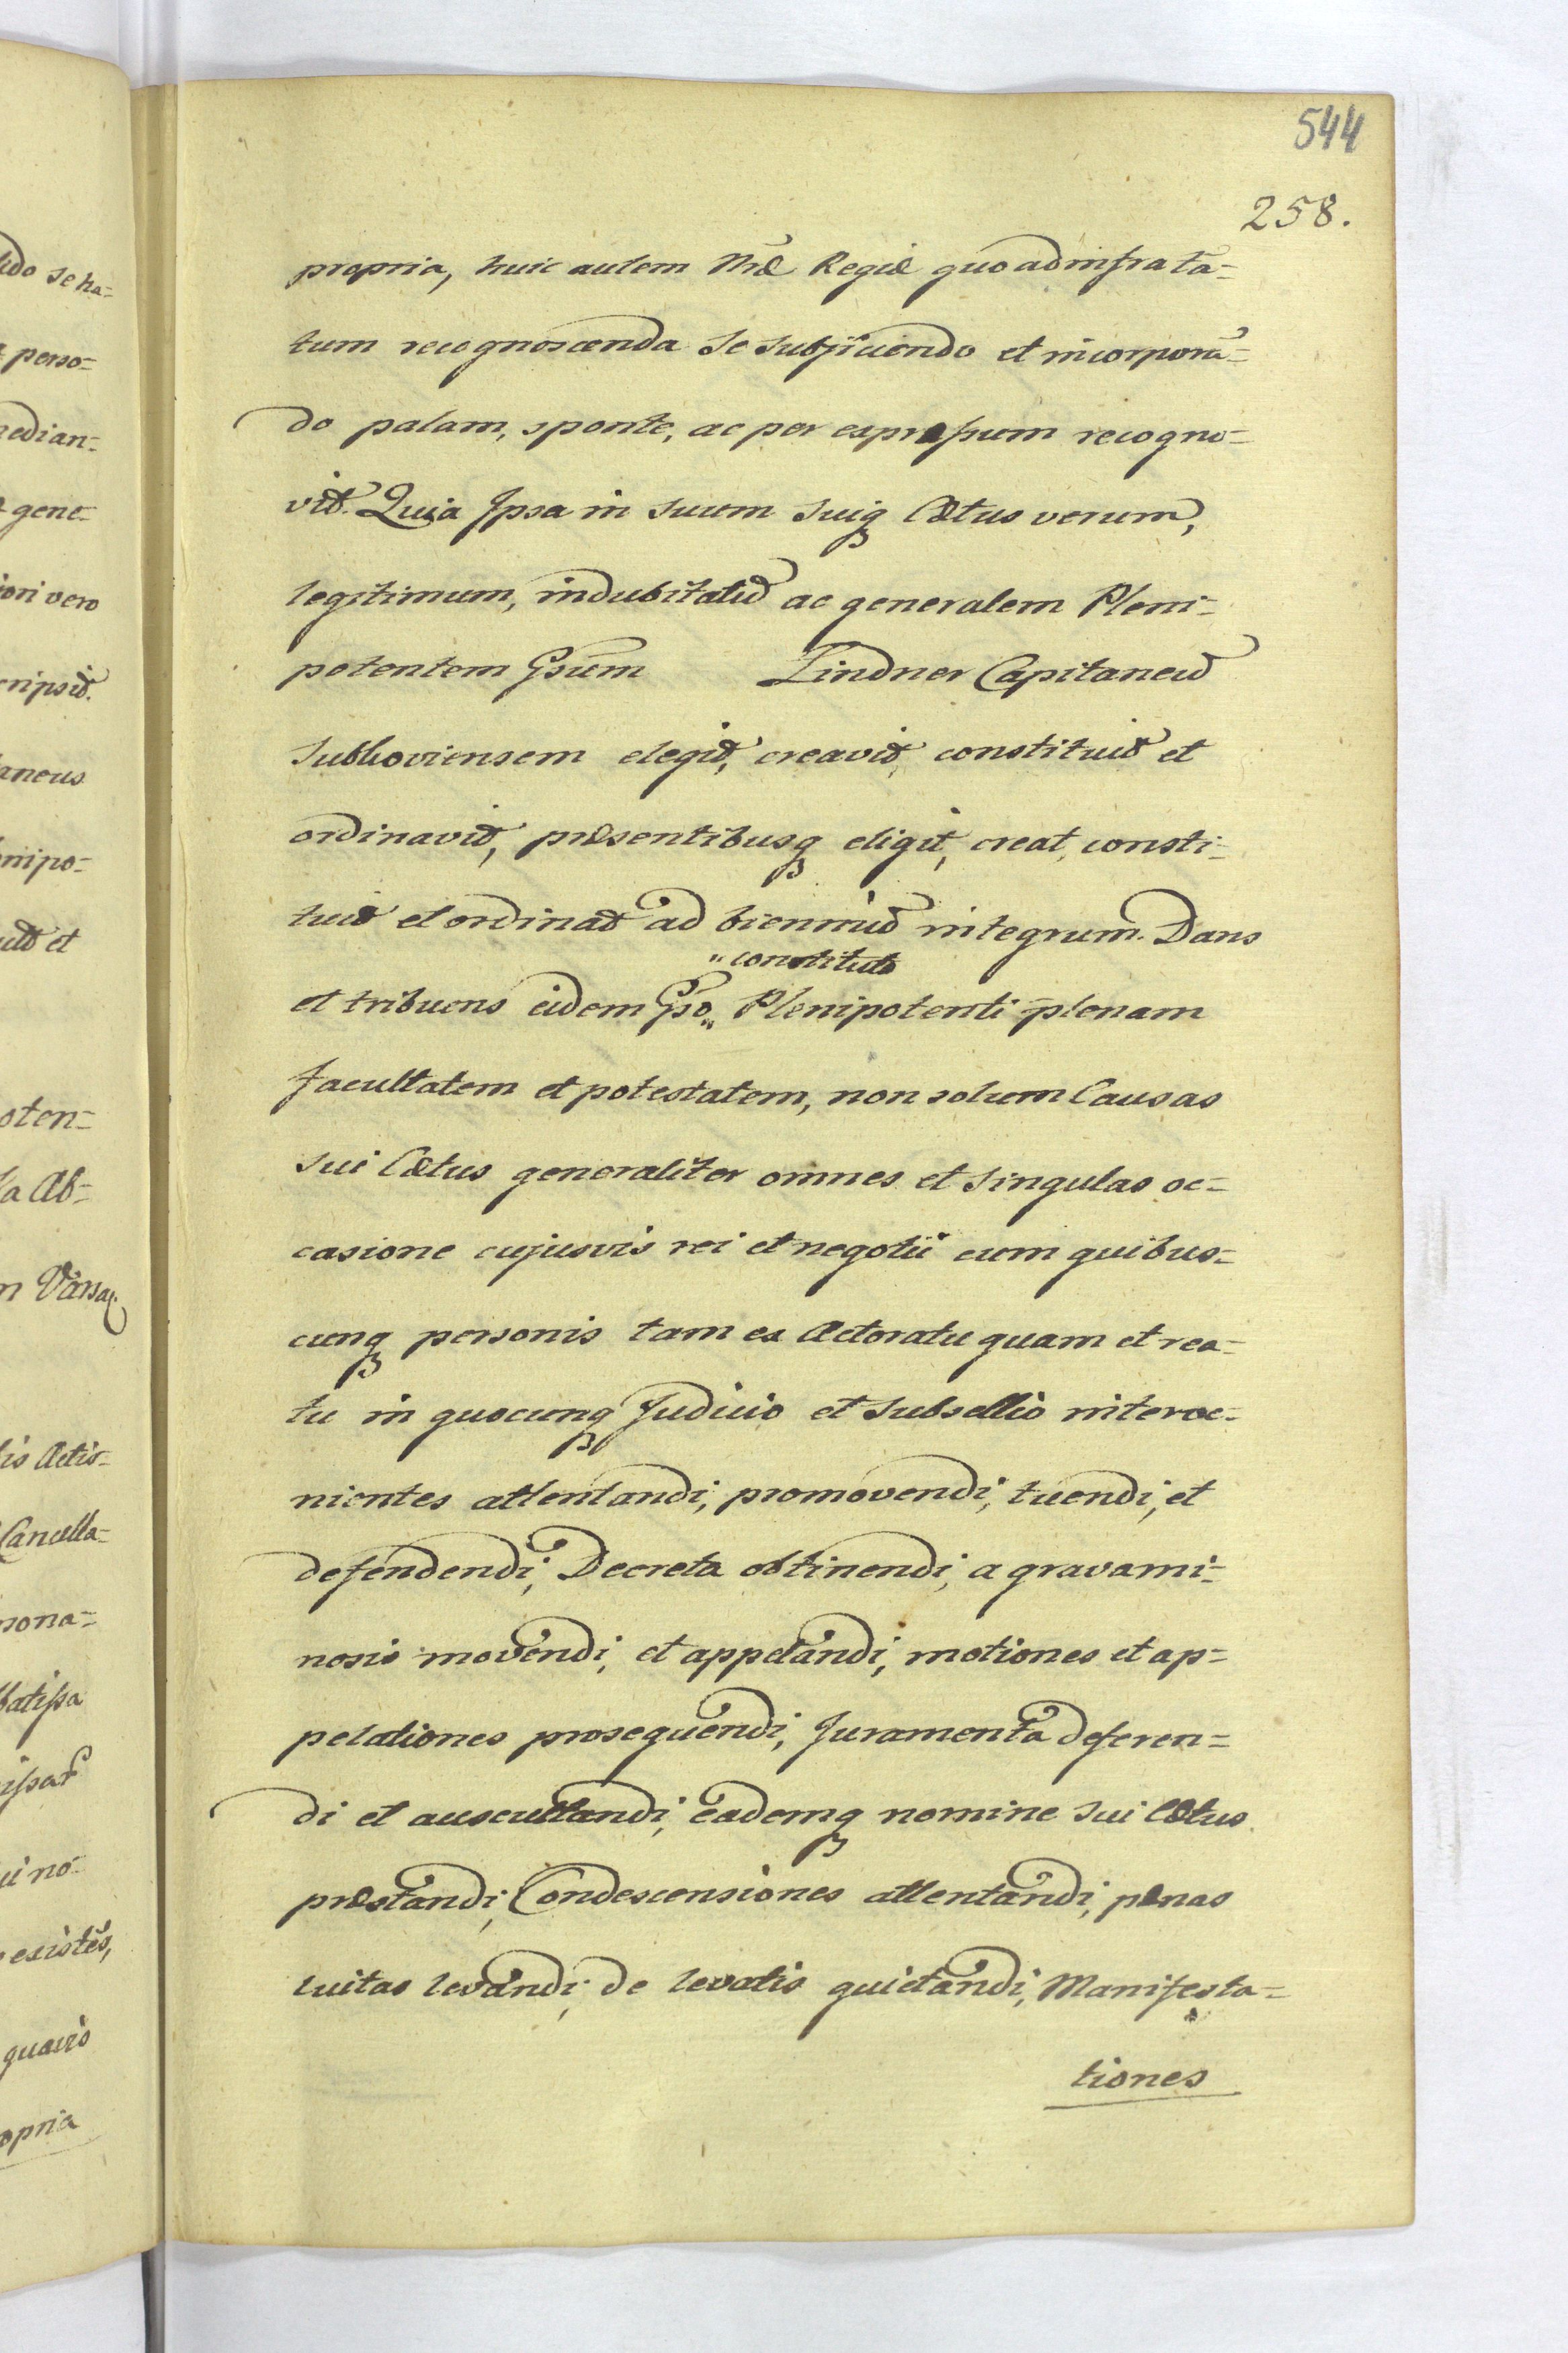 544
258.
propria, huic autem Nræ Regiæ quoad infrata=
tum recognoscenda se subjiciendo et incorporā=
do palam, sponte, ac per expressum recogno=
vit. Quia Ipsa in suum suiq Cætus verum,
legitimum, indubitatū ac generalem Pleni=
potentem Gsum Lindner Capitaneū
Subkoviensem elegit, creavit, constituit et
ordinavit, præsentibusq eligit, creat, consti=
tuit et ordinat ad bienniū integrum. Dans
„constituto
et tribuens eidem Gso„ Plenipotenti plenam
facultatem et potestatem, non solum Causas
sui Cætus generaliter omnes et singulas oc=
casione cujusvis rei et negotii cum quibus=
cunq personis tam ex Actoratu quam et rea=
tu in quocunq Judicio et subsellio interve=
nientes attentandi, promovendi, tuendi, et
defendendi, Decreta obtinendi, a gravami=
nosis movendi, et appelandi, motiones et ap=
pelationes prosequendi, Juramenta deferen=
di et auscultandi, eademq nomine sui Cætus
præstandi, Condescensiones attentandi, pænas
luitas levandi, de levatis quietandi, Manifesta=
tiones
lido se ha=
perso=
median=
gene=
iori vero
cripsit.
aneus
nipo=
uit et
oten=
la Ab=
Varsa
lis Actis
Cancella=
sona=
batissa
existēs,
quavis
opria